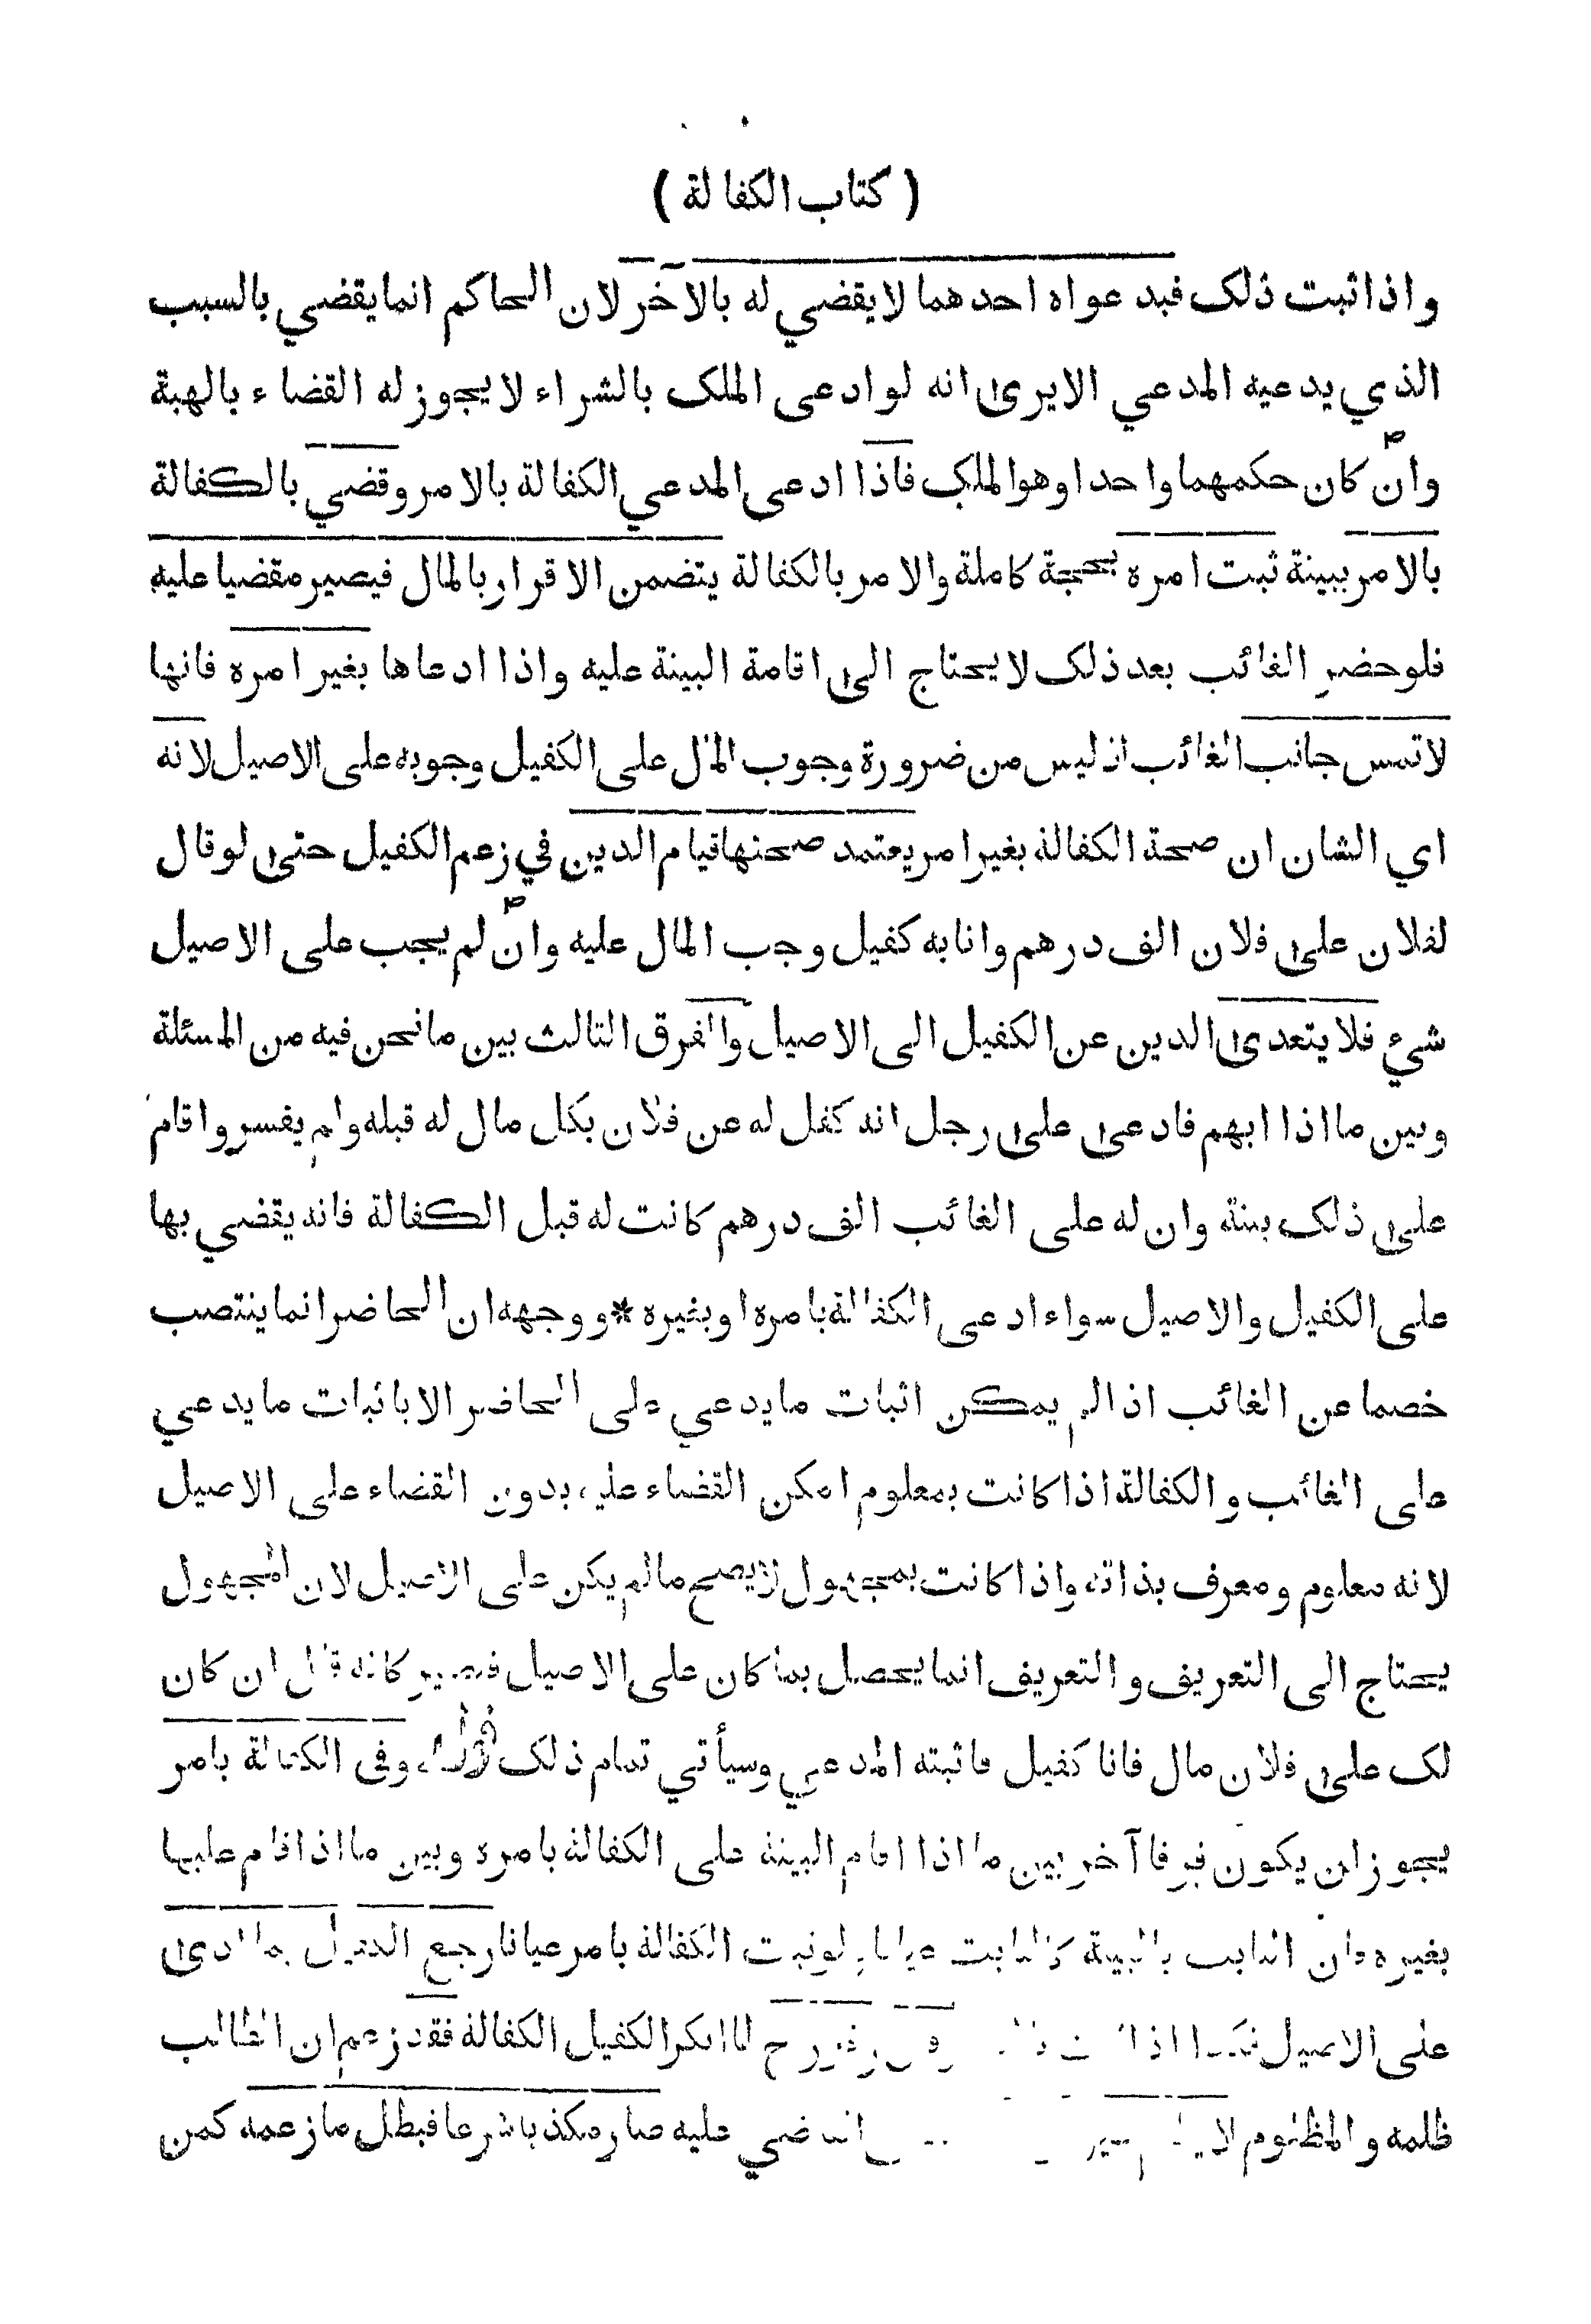 ( كتاب الكفالة )
واذا ثبت ذلك فبدعواه احدهما لا يقضي له بالآخر لان الحاكم انما يقضي بالسبب
الذي يدعيه المدعي الا يرى انه لو ادعى الملك بالشراء لا يجوز له القضاء بالهبة
وان كان حكمهما واحدا وهو الملك فاذا ادعى المدعي الكفالة بالامر وقضي بالكفالة
بالامر ببينة ثبت امره بحجة كاملة والامر بالكفالة يتضمن الاقرار بالمال فيصير مقضيا عليه
فلو حضر الغائب بعد ذلك لا يحتاج الى اقامة البينة عليه واذا ادعاها بغير امره فانها
لا تمس جانب الغائب اذ ليس من ضرورة وجوب المال على الكفيل وجوبه على الاصيل لانه
اي الشان ان صحة الكفالة بغير امر يعتمد صحتها قيام الدين في زعم الكفيل حتى لو قال
لفلان على فلان الف درهم وانا به كفيل وجب المال عليه وان لم يجب على الاصيل
شيء فلا يتعدى الدين عن الكفيل الى الاصيل والفرق الثالث بين ما نحن فيه من المسئلة
وبين ما اذا ابهم فادعى على رجل انه كفل له عن فلان بكل مال له قبله ولم يفسر واقام
على ذلك بينة وان له على الغائب الف درهم كانت له قبل الكفالة فانه يقضي بها
على الكفيل والاصيل سواء ادعى الكفالة بامره او بغيره * ووجهه ان الحاضر انما ينتصب
خصما عن الغائب اذا لم يمكن اثبات ما يدعي على الحاضر الا باثبات ما يدعي
على الغائب والكفالة اذا كانت بمعلوم امكن القضاء عليه بدون القضاء على الاصيل
لانه معلوم ومعرف بذاته واذا كانت بمجهول لا يصح ما لم يكن على الاصيل لان المجهول
يحتاج الى التعريف والتعريف انما يحصل بما كان على الاصيل فيصير كانه قال ان كان
لك على فلان مال فانا كفيل فاثبته المدعي وسيأتي تمام ذلك وفي الكفالة بامر
يجوز ان يكون فرقا آخر بين ما اذا اقام البينة على الكفالة بامره وبين ما اذا اقام عليها
بغيره فان الثابت بالبينة كالثابت عيانا ولو ثبت الكفالة بامر عيانا رجع الكفيل بما ادى
على الاصيل فكذا اذا لما انكر الكفيل الكفالة فقد زعم ان الطالب
ظلمه والمظلوم لا عليه صار مكذبا شرعا فبطل ما زعمه كمن